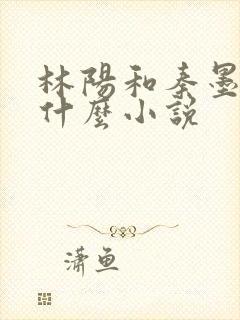 林陽和秦墨
什麼小說
瀟魚